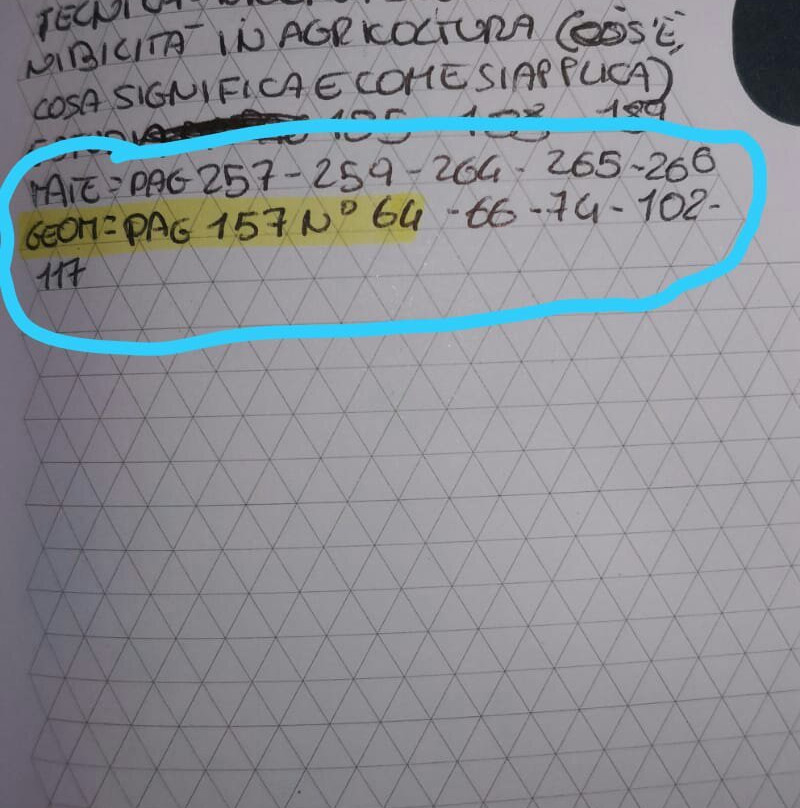 TECNI
NIBICITA' IN AGRICOLTURA (COS'È,
COSA SIGNIFICA E COME SI APPLICA)
189
MATE = PAG 257 - 259 - 264 - 265 - 266
GEOM = PAG 157 N° 64 - 66 - 74 - 102 -
117